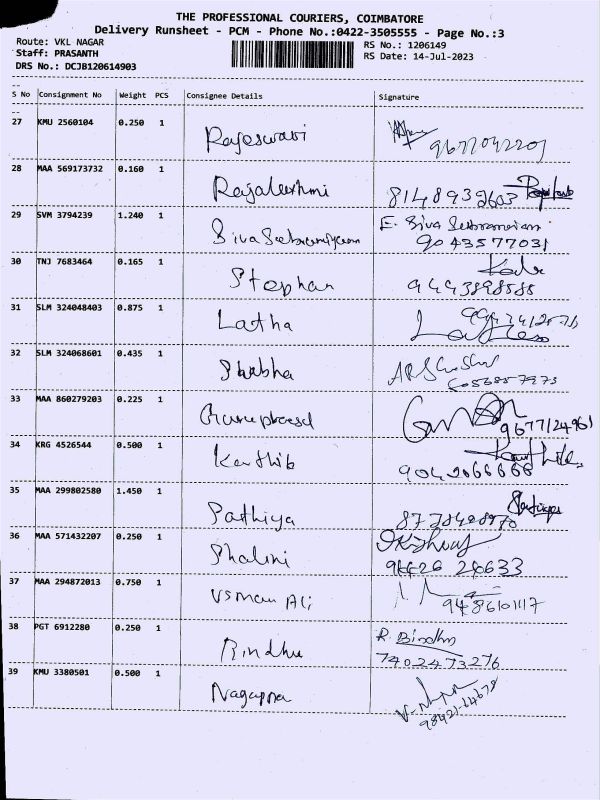 THE PROFESSIONAL COURIERS, COIMBATORE
Delivery Runsheet - PCM - Phone No.:0422-3505555 - Page No.:3
Route: VKL NAGAR
RS No.: 1206149
Staff: PRASANTH
RS Date: 14-Jul-2023
DRS No.: DCJB120614903
S No Consignment No Weight PCS Consignee Details Signature
27 KMU 2560104 0.250 1 Rajeswari
28 MAA 569173732 0.160 1 Rajalakshmi 8148932603
29 SVM 3794239 1.240 1 Siva Subramaniyam E. Siva Subramaniam
9043577031
30 TNJ 7683464 0.165 1 Stephan 9443898588
31 SLM 324048403 0.875 1 Latha
32 SLM 324068601 0.435 1 Shobha
33 MAA 860279203 0.225 1 9677124961
34 KRG 4526544 0.500 1 Karthik 9042066666
35 MAA 299802580 1.450 1 Sathiya
36 MAA 571432207 0.250 1 Shalini
37 MAA 294872013 0.750 1 Usman Ali 9486101117
38 PGT 6912280 0.250 1 Bindhu R. Bindhu
7402473276
39 KMU 3380501 0.500 1 Nagappa